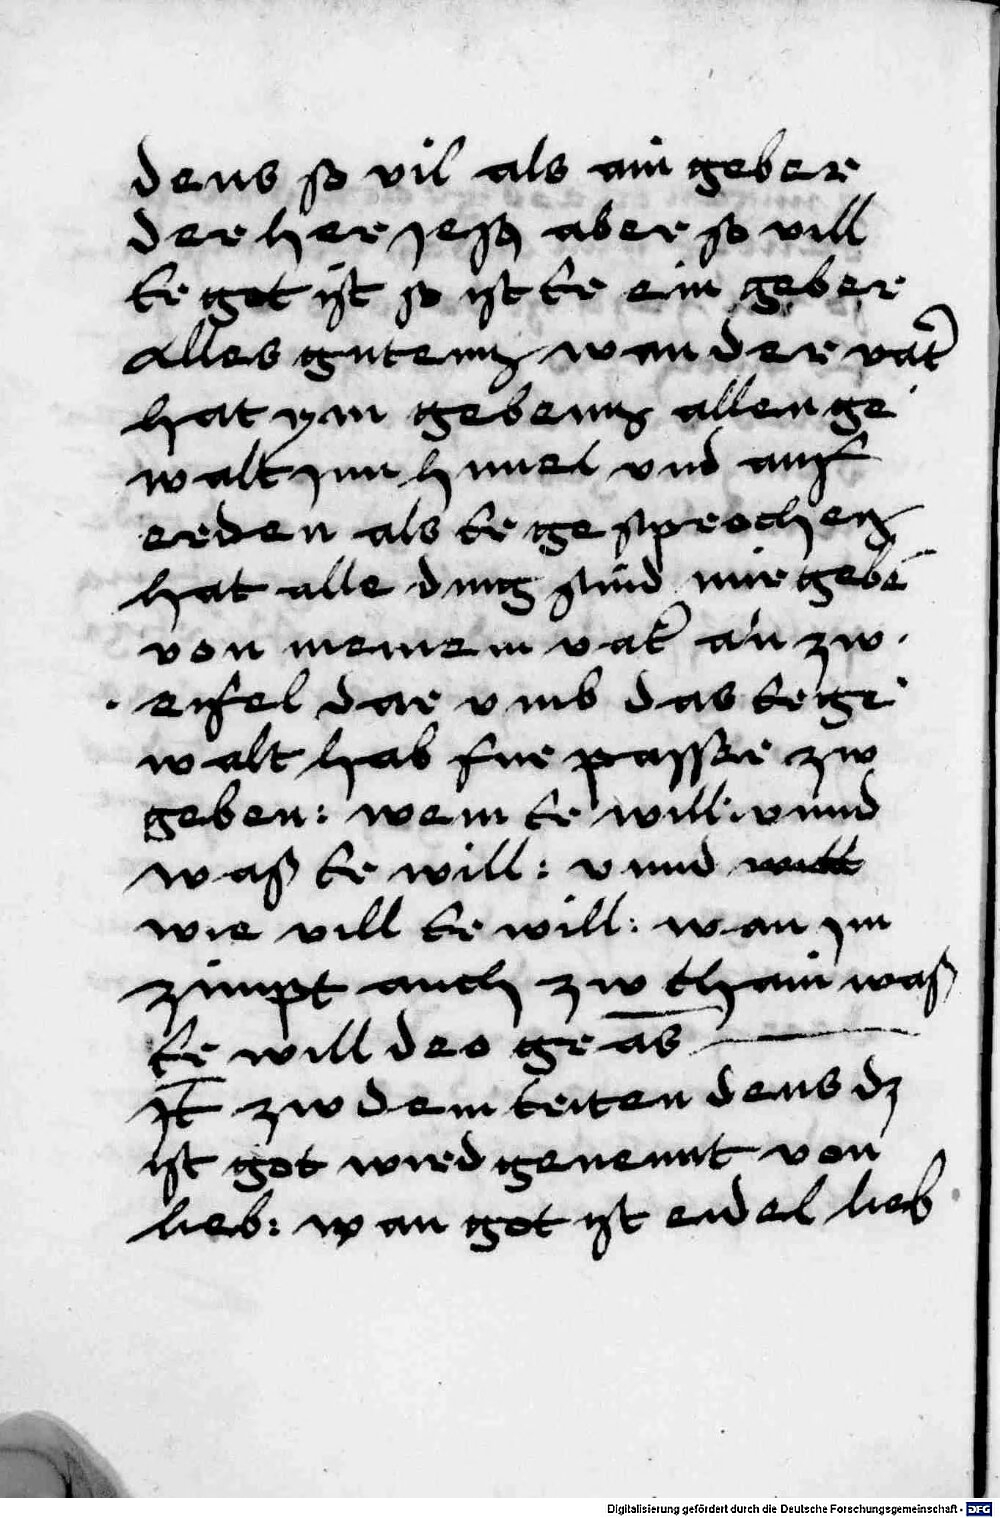 deus so vil als ain geber
der her jesus aber so vill
er got ist so ist er ein geber
alles gutenn wan der vat̄
hat ym gebenn allen ge
walt jnn himel vnd auff
erden als er gesprochenn
hat alle ding sind mir gebē
von meinem vat̄ an zw
eifel dar vmb das er ge
walt hab fur passer zw
geben: wem er will: vnnd
waß er will: vnnd will
wie vill er will: wan jm
zimpt auch zw thain waß
er will deo gr̄as
jt̄ zw dem driten deus dz
ist got wird genennt von
lieb: wan got ist eidel lieb
Digitalisierung gefördert durch die Deutsche Forschungsgemeinschaft - DFG